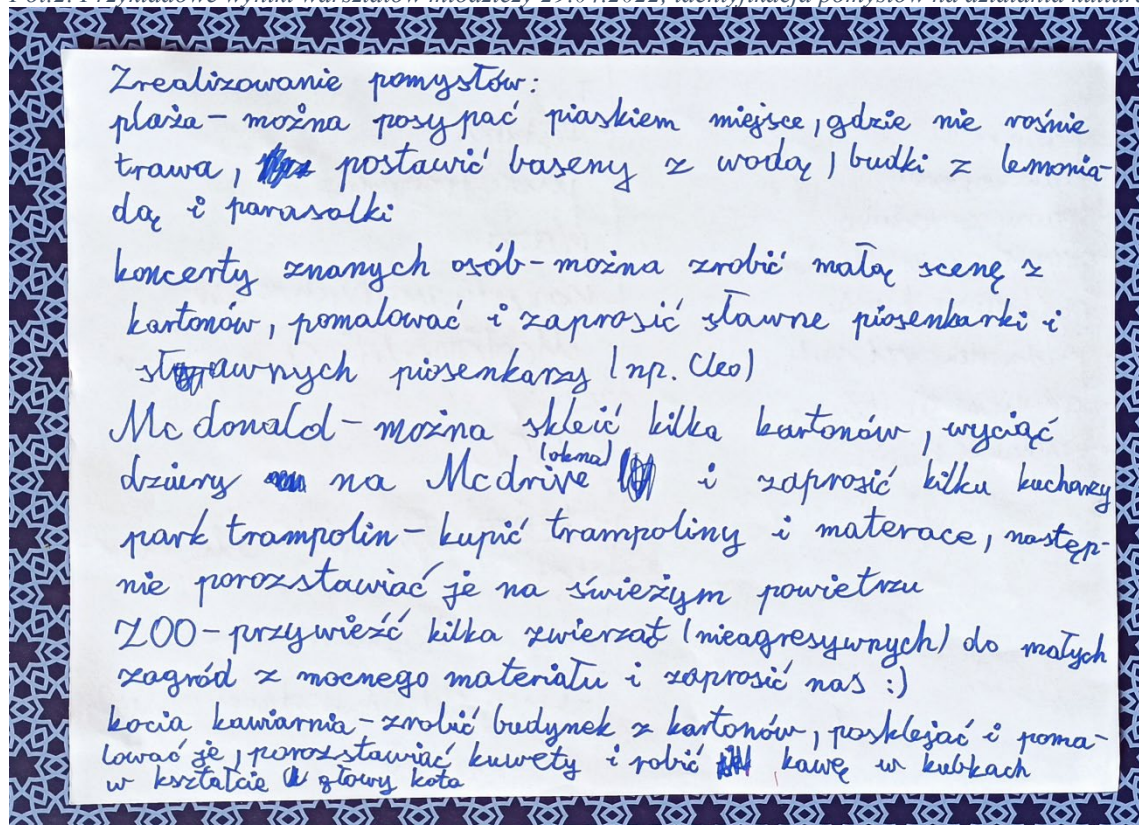 Zrealizowanie pomysłów:
plaża – można posypać piaskiem miejsce, gdzie nie rośnie
trawa, postawić baseny z wodą, budki z lemonia-
dą i parasolki
koncerty znanych osób – można zrobić małą scenę z
kartonów, pomalować i zaprosić sławne piosenkarki i
sławnych piosenkarzy (np. Cleo)
Mc donald – można skleić kilka kartonów, wyciąć
dziury na Mcdrive (okna) i zaprosić kilku kucharzy
park trampolin – kupić trampoliny i materace, następ-
nie porozstawiać je na świeżym powietrzu
ZOO – przywieźć kilka zwierząt (nieagresywnych) do małych
zagród z mocnego materiału i zaprosić nas :)
kocia kawiarnia – zrobić budynek z kartonów, posklejać i poma-
lować je, porozstawiać kuwety i robić kawę w kubkach
w kształcie głowy kota